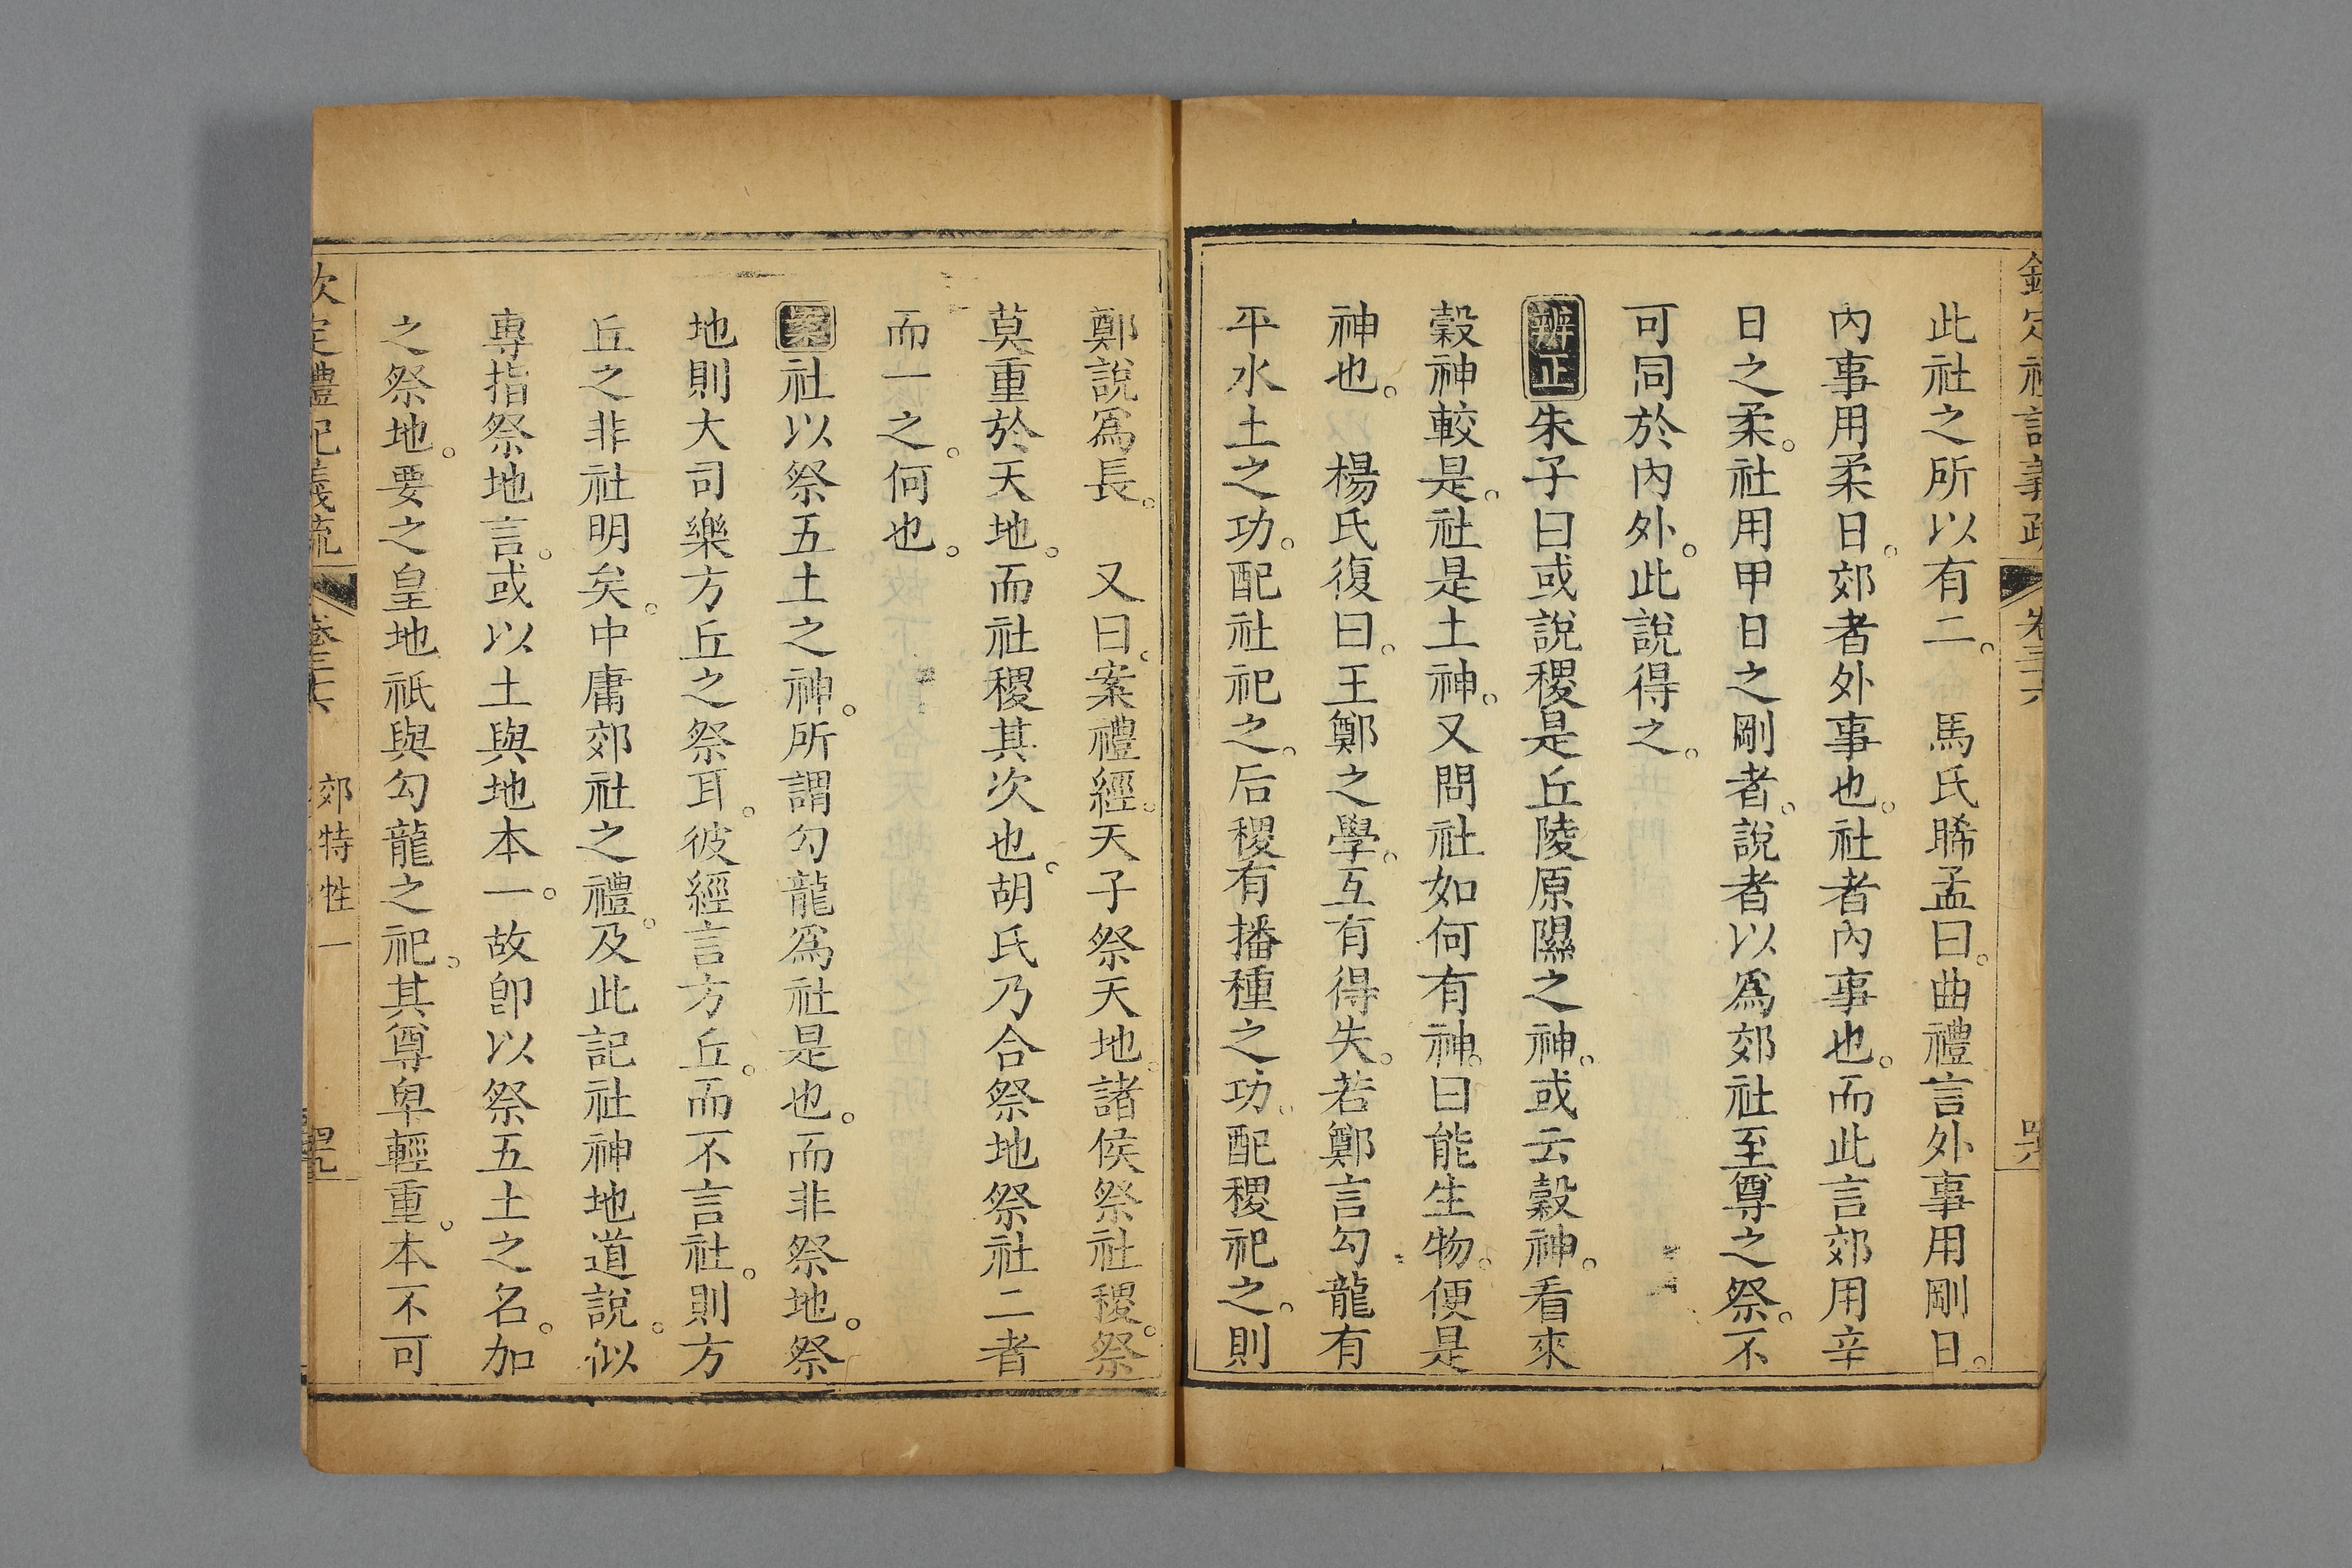 欽定禮記義疏 卷三十六
此社之所以有二。 馬氏睎孟曰。曲禮言外事用剛日。
內事用柔日。郊者外事也。社者內事也。而此言郊用辛
日之柔。社用甲日之剛者。說者以爲郊社至尊之祭。不
可同於內外。此說得之。
辨正朱子曰或說稷是丘陵原隰之神。或云穀神。看來
穀神較是。社是土神。又問社如何有神。曰能生物。便是
神也。 楊氏復曰。王鄭之學。互有得失。若鄭言勾龍有
平水土之功。配社祀之。后稷有播種之功。配稷祀之。則
鄭說爲長。 又曰。案禮經。天子祭天地。諸侯祭社稷。祭
莫重於天地。而社稷其次也。胡氏乃合祭地祭社二者
而一之。何也。
案社以祭五土之神。所謂勾龍爲社是也。而非祭地。祭
地則大司樂方丘之祭耳。彼經言方丘。而不言社。則方
丘之非社明矣。中庸郊社之禮。及此記社神地道說。似
專指祭地言。或以土與地本一。故卽以祭五土之名。加
之祭地。要之皇地祇與勾龍之祀。其尊卑輕重。本不可
欽定禮記義疏 卷三十六 郊特牲一